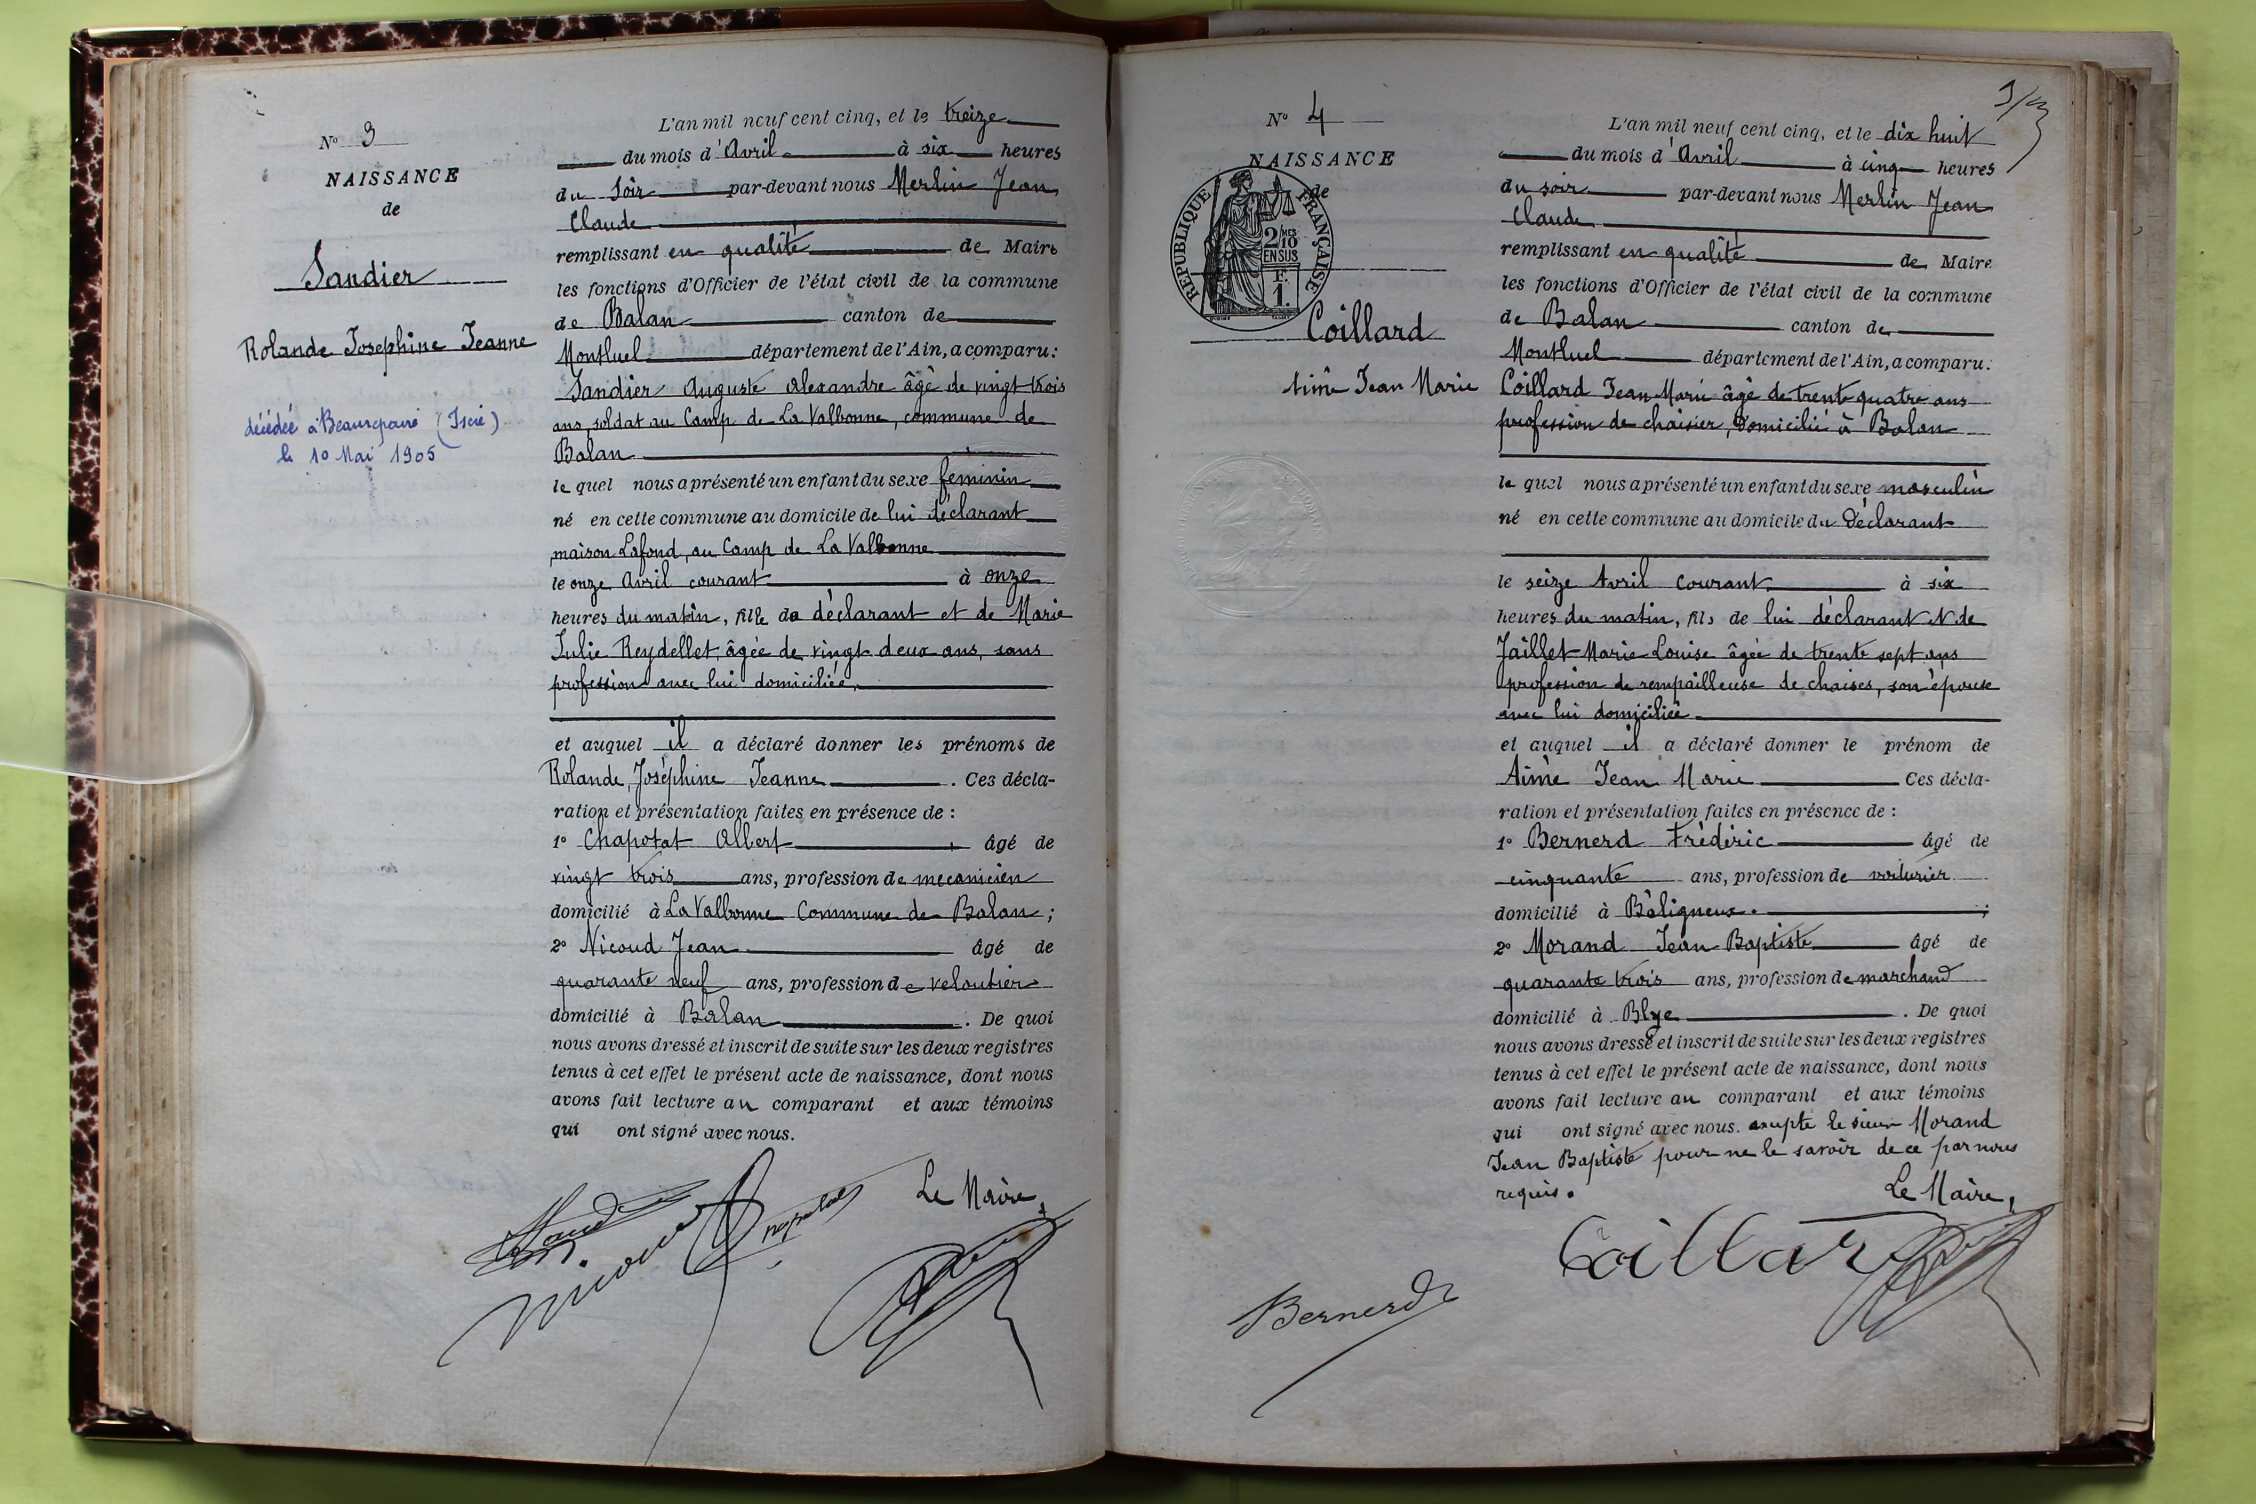 N° 3
NAISSANCE
de
Sandier
Rolande Josephine Jeanne
décédée à Beaurepaire (Isère)
le 10 Mai 1905
L'an mil neuf cent cinq, et le treize
du mois d'Avril à six heures
du Soir par-devant nous Merlin Jean
Claude
remplissant en qualité de Maire
les fonctions d'Officier de l'état civil de la commune
de Balan canton de
Montluel département de l'Ain, a comparu:
Sandier Auguste Alexandre âgé de vingt trois
ans, soldat au Camp de La Valbonne, commune de
Balan
le quel nous a présenté un enfant du sexe féminin
né en cette commune au domicile de lui déclarant
maison Lafond, au Camp de La Valbonne
le onze Avril courant à onze
heures du matin, fille du déclarant et de Marie
Julie Reydellet, âgée de vingt deux ans, sans
profession avec lui domiciliée,
et auquel il a déclaré donner les prénoms de
Rolande, Joséphine Jeanne. Ces décla-
ration et présentation faites en présence de :
1° Chapotat Albert, âgé de
vingt trois ans, profession de mecanicien
domicilié à La Valbonne Commune de Balan;
2° Nicoud Jean âgé de
quarante neuf ans, profession de veloutier
domicilié à Balan. De quoi
nous avons dressé et inscrit de suite sur les deux registres
tenus à cet effet le présent acte de naissance, dont nous
avons fait lecture au comparant et aux témoins
qui ont signé avec nous.
Le Maire,
3/3
N° 4
NAISSANCE
de
RÉPUBLIQUE FRANÇAISE
2/10 MES
EN SUS
F.
1.
Coillard
Aimé Jean Marie
L'an mil neuf cent cinq, et le dix huit
du mois d'Avril à cinq heures
du soir par-devant nous Merlin Jean
Claude
remplissant en qualité de Maire
les fonctions d'Officier de l'état civil de la commune
de Balan canton de
Montluel département de l'Ain, a comparu:
Coillard Jean Marie âgé de trente quatre ans
profession de chaisier, Domicilié à Balan
le quel nous a présenté un enfant du sexe masculin
né en cette commune au domicile du Déclarant
le seize Avril courant à six
heures du matin, fils de lui déclarant et de
Jaillet Marie Louise âgée de trente sept ans
profession de rempailleuse de chaises, son épouse
avec lui domiciliée
et auquel il a déclaré donner le prénom de
Aimé Jean Marie Ces décla-
ration et présentation faites en présence de :
1° Bernerd Frédéric âgé de
cinquante ans, profession de voiturier
domicilié à Béligneux. ;
2° Morand Jean Baptiste âgé de
quarante trois ans, profession de marchand
domicilié à Blye. De quoi
nous avons dressé et inscrit de suite sur les deux registres
tenus à cet effet le présent acte de naissance, dont nous
avons fait lecture au comparant et aux témoins
qui ont signé avec nous. exepté le sieur Morand
Jean Baptiste pour ne le savoir de ce par nous
requis.
Le Maire,
Coillard
Bernerd